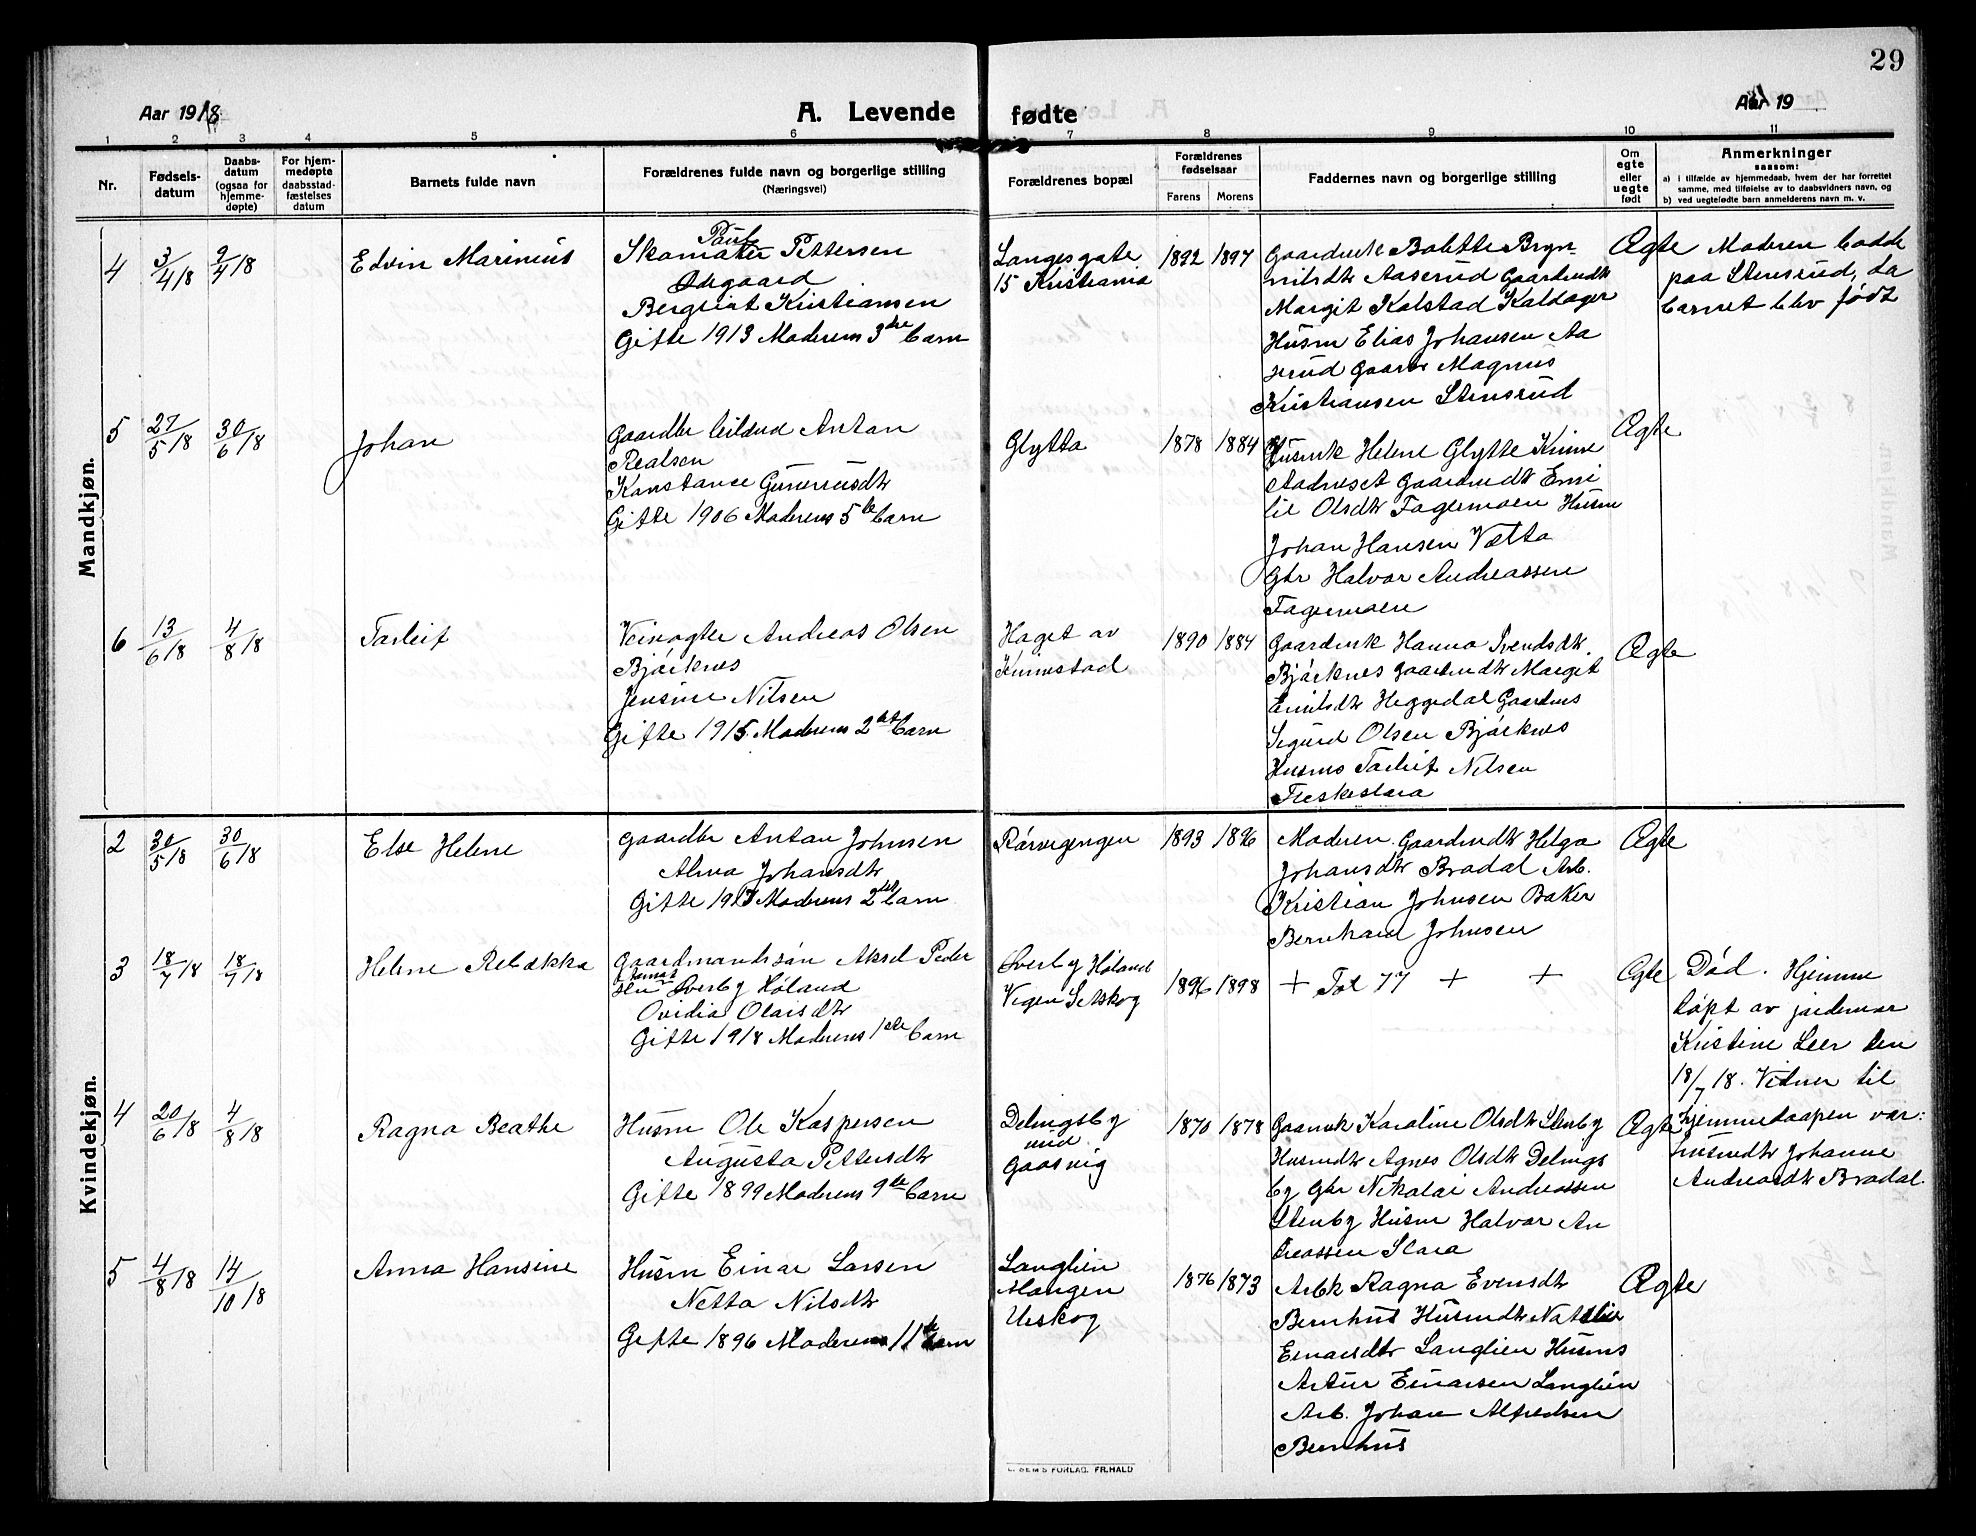 29
Aar 1918
A. Levende fødte
Aar 19
1 2 3 4 5 6 7 8 9 10 11
Nr.
Fødsels-
datum
Daabs-
datum
(ogsaa for
hjemme-
døpte)
For hjem-
medøpte
daabsstad-
fæstelses
datum
Barnets fulde navn
Forældrenes fulde navn og borgerlige stilling
(Næringsvei)
Forældrenes bopæl
Forældrenes
fødselsaar
Farens Morens
Faddernes navn og borgerlige stilling
Om
egte
eller
uegte
født
Anmerkninger
saasom:
a) i tilfælde av hjemmedaab, hvem der har forrettet
samme, med tilføielse av to daabsvidners navn, og
b) ved uegtefødte barn anmelderens navn m. v.
Mandkjøn.
4
3/4 18
2/4 18
Edvin Marinius
Paul
Skomaker Pettersen
Ødegaard
Bergliot Kristiansen
Gifte 1913 Moderens 3die barn
Langesgate
15 Kristiania
1892 1897
Gaardmk Bolette Bryn
nilsdtr Aaserud Gaardmdtr
Margit Kolstad Kaldager
Husm Elias Johansen Aa
serud Gaardm Magnus
Kristiansen Stensrud
Ægte
Moderen bodde
paa Stensrud, da
barnet blev født
5
27/5 18
30/6 18
Johan
Gaardbr Anton
Realsen
Konstance Gunerusdtr
Gifte 1906 Moderens 5te barn
Glytta
1878 1884
Husmk Helene Glytte Kinne
Aadneset Gaardmdtr Emi
lie Olsdtr Fagermoen Husm
Johan Hansen Vætta
Gbr Halvor Andreassen
Fagermoen
Ægte
6
13/6 18
4/8 18
Torleif
Veivogter Andreas Olsen
Bjørknes
Jensine Nilsen
Gifte 1915 Moderens 2det barn
Haget av
Kinnestad
1890 1884
Gaardmk Hanna Svendsdtr.
Bjørknes Gaardmdtr Margit
Emilsdtr Heggedal Gaardms
Sigurd Olsen Bjørknes
Husms Torleif Nilsen
Fleskeslora
Ægte
Kvindekjøn.
2
30/5 18
30/6 18
Else Helene
Gaardbr Anton Johnsen
Alma Johansdtr
Gifte 1917 Moderens 2det barn
Rørvegengen
1893 1896
Moderen. Gaardmdtr Helga
Johansdtr Bradal Arb.
Kristian Johnsen Baker
Bernhard Johnsen
Ægte
3
18/7 18
18/7 18
Helene Rebekka
Gaardmandssøn Aksel Peder
sen Tomas Øverby Høland
Ovidia Olarsdtr
Gifte 1918 Moderens 1ste barn
Øverby Høland
Vegen Setskog
1896 1898
+ Fol 77 + +
Ægte
Død. Hjemme
døpt av jordemor
Kristine Leer den
18/7 18. Vidner til
hjemmedaapen var:
husmdtr Johanne
Andreasdtr Bradal.
4
20/6 18
4/8 18
Ragna Beathe
Husm Ole Kaspersen
Augusta Pettersdtr
Gifte 1899 Moderens 9de barn
Delingsby
und
Gaasvig
1870 1878
Gaardmk Karoline Olsdtr Stenby
Husmdtr Agnes Olsdtr Delings
by Gbr Nikolai Andreassen
Stenby Husm Halvor An
dreassen Slora
Ægte
5
4/8 18
14/10 18
Anna Hansine
Husm Einar Larsen
Netta Nilsdtr
Gifte 1896 Moderens 11te barn
Langlien
Mangen
Urskog
1876 1873
Arbk Ragna Evensdtr
Bernhus Husmdtr Natalie
Einarsdtr Langlien Husms
Artur Einarsen Langlien
Arb. Johan Alfredsen
Bernhus
Ægte
SEM'S FORLAG. FR.HALD